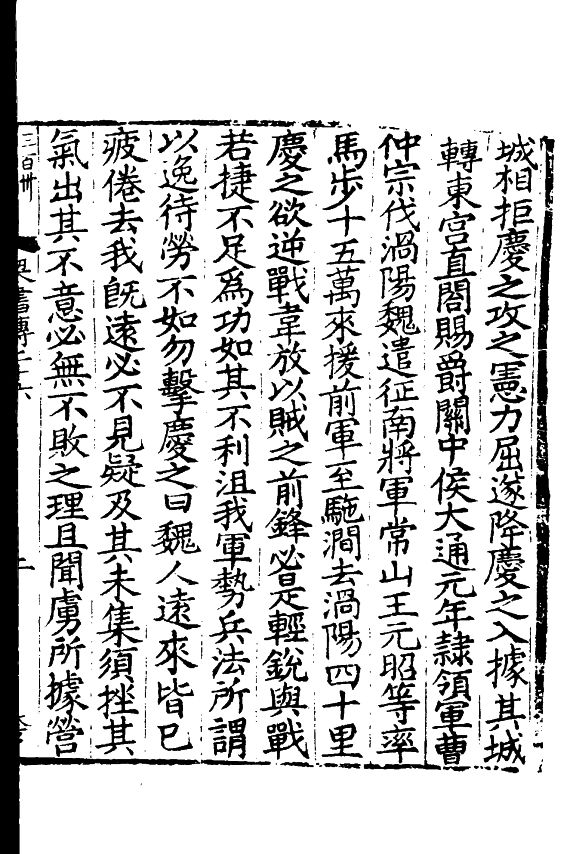 城相拒慶之攻之憲力屈遂降慶之入據其城
轉東宮直閤賜爵關中侯大通元年隷領軍曹
仲宗伐渦陽魏遣征南將軍常山王元昭等率
馬步十五萬來援前軍至駞澗去渦陽四十里
慶之欲逆戰韋放以賊之前鋒必是輕銳與戰
若捷不足爲功如其不利沮我軍勢兵法所謂
以逸待勞不如勿擊慶之曰魏人遠來皆已
疲倦去我旣遠必不見疑及其未集須挫其
氣出其不意必無不敗之理且聞虜所據營
三百卅
梁書傳二十六
二